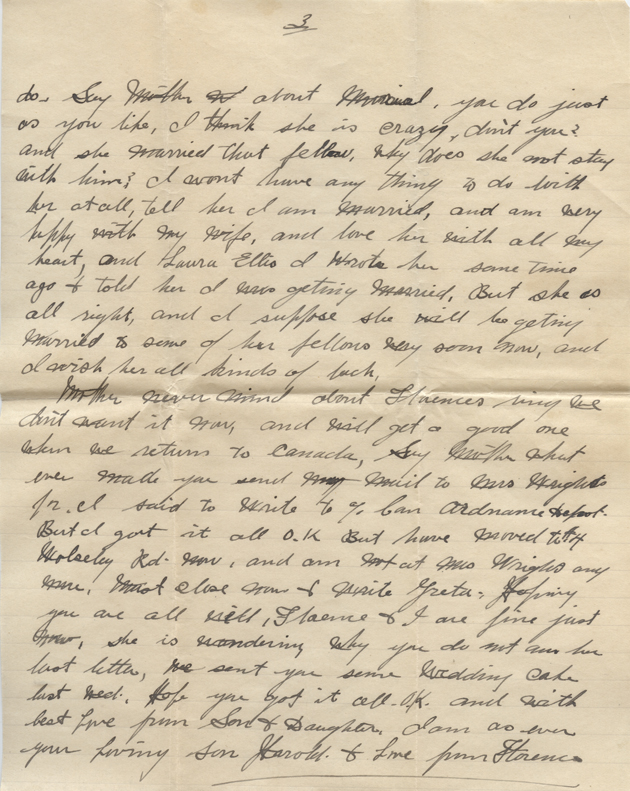 3
do. Say Mother about you do just
as you like, I think she is crazy, dont you?
and she married that fellow, why does she not stay
with him? I wont have any thing to do with
her at all, tell her I am married, and am very
happy with my wife, and love her with all my
heart, and Laura Ellis I wrote her some time
ago & told her I was getting married, But she is
all right, and I suppose she will be geting
married to some of her fellows very soon now, and
I wish her all kinds of luck,
Mother never mind about Florences ring we
dont want it now, and will get a good one
when we return to Canada, Say Mother what
ever made you send my mail to Mrs Wrights
for I said to write to % Can Ordnance Depot.
But I got it all O.K But have moved to 
Wolseley Rd. now, and am not at Mrs Wrights any
more, Must close now & write Greta. Hoping
you are all well, Florence & I are fine just
now, she is wondering why you do not ans her
last letter, we sent you some Wedding Cake
last Wed. Hope you got it all O.K. and with
best Love from Son & Daughter. I am as ever
your Loving son Harold. & Love from Florence